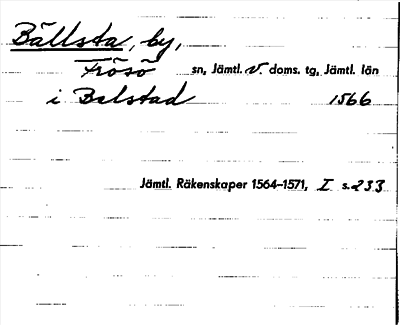 Bällsta, by,
Frösö sn, Jämtl. v. doms. tg, Jämtl. län
i Balstad 1566
Jämtl. Räkenskaper 1564–1571, I s. 233